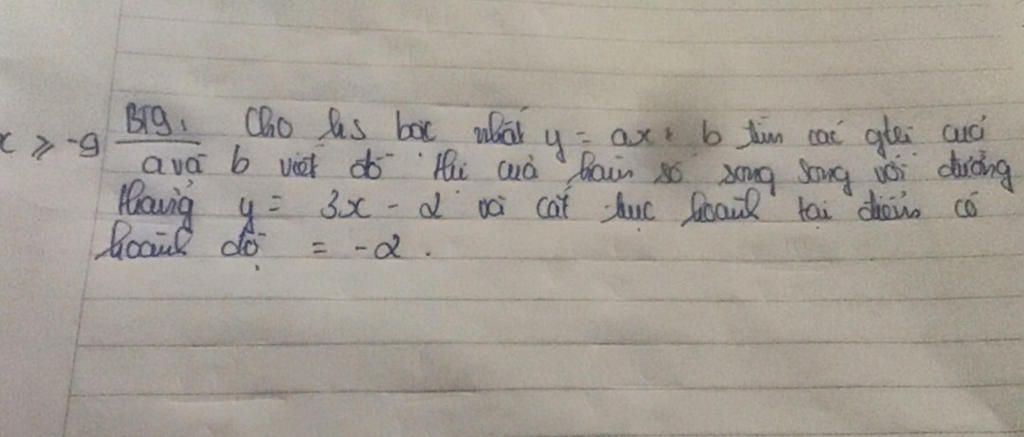 x ≥ -9
BT9. Cho hs bậc nhất y = ax + b tìm các gtri của
a và b biết đồ thị của hàm số song song với đường
thẳng y = 3x - 2 và cắt trục hoành tại điểm có
hoành độ = -2.